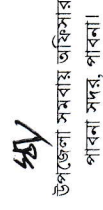 উপজেলা সমবায় অফিসার
পাবনা সদর, পাবনা।